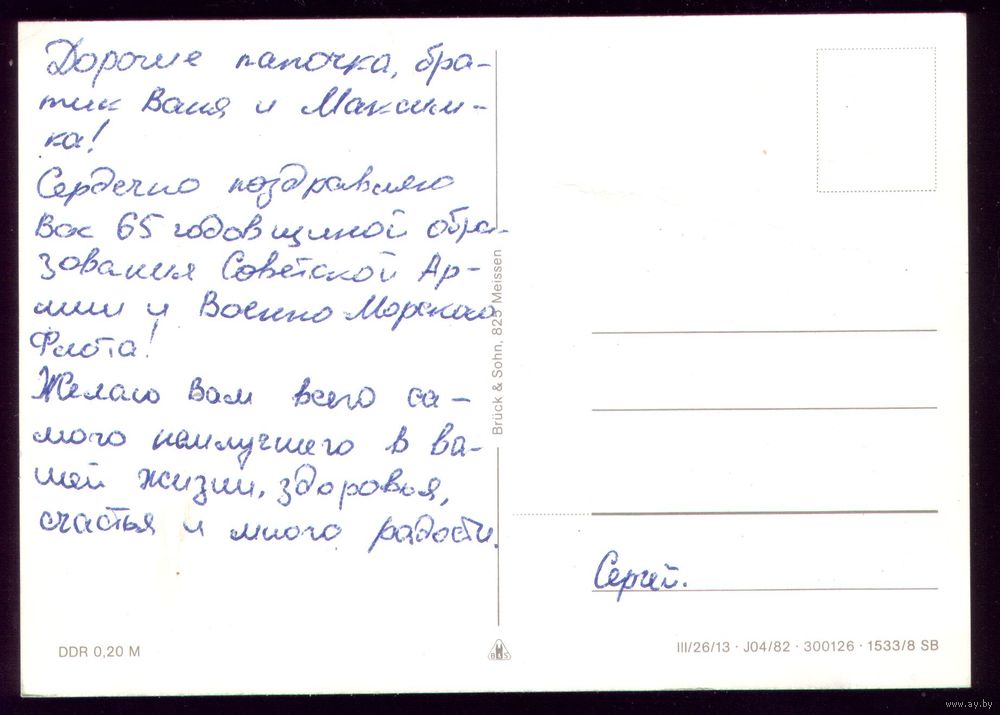 Дорогие папочка, бра-
тик Ваня и Максим-
ка!
Сердечно поздравляю
Вас 65 годовщиной обра-
зования Советской Ар-
мии и Военно-Морского
Флота!
Желаю Вам всего са-
мого наилучшего в ва-
шей жизни, здоровья,
счастья и много радости.
Brück & Sohn, 825 Meissen
Сергей.
DDR 0,20 M
B&S
III/26/13 · J04/82 · 300126 · 1533/8 SB
www.ay.by